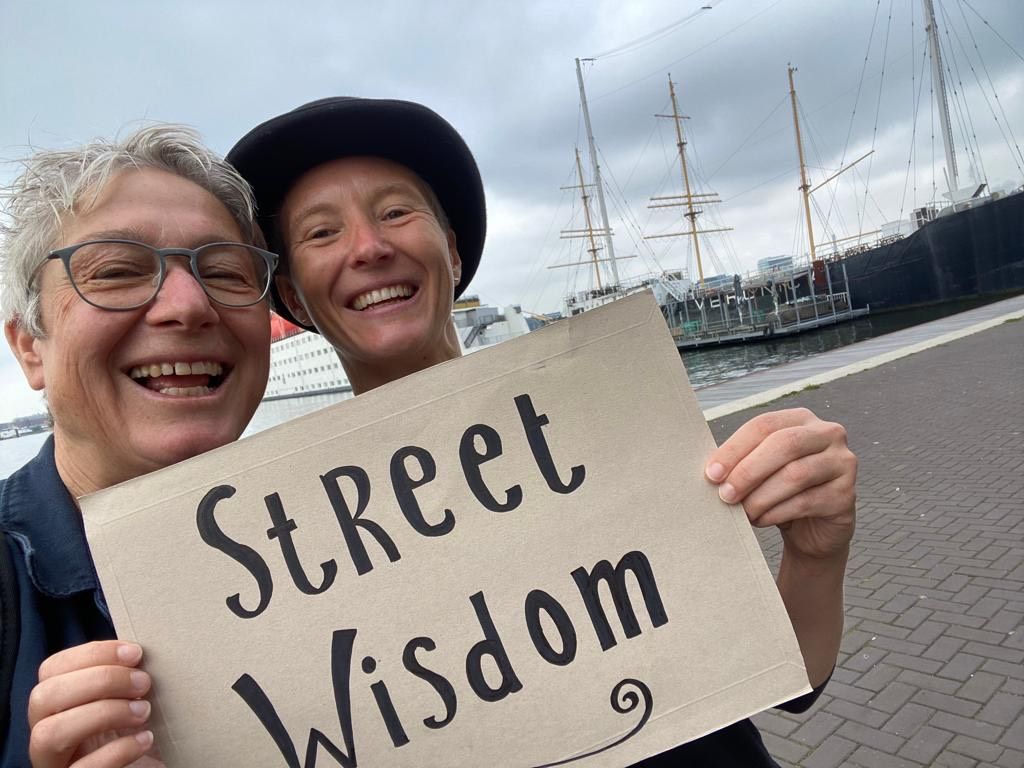 StReet
Wisdom